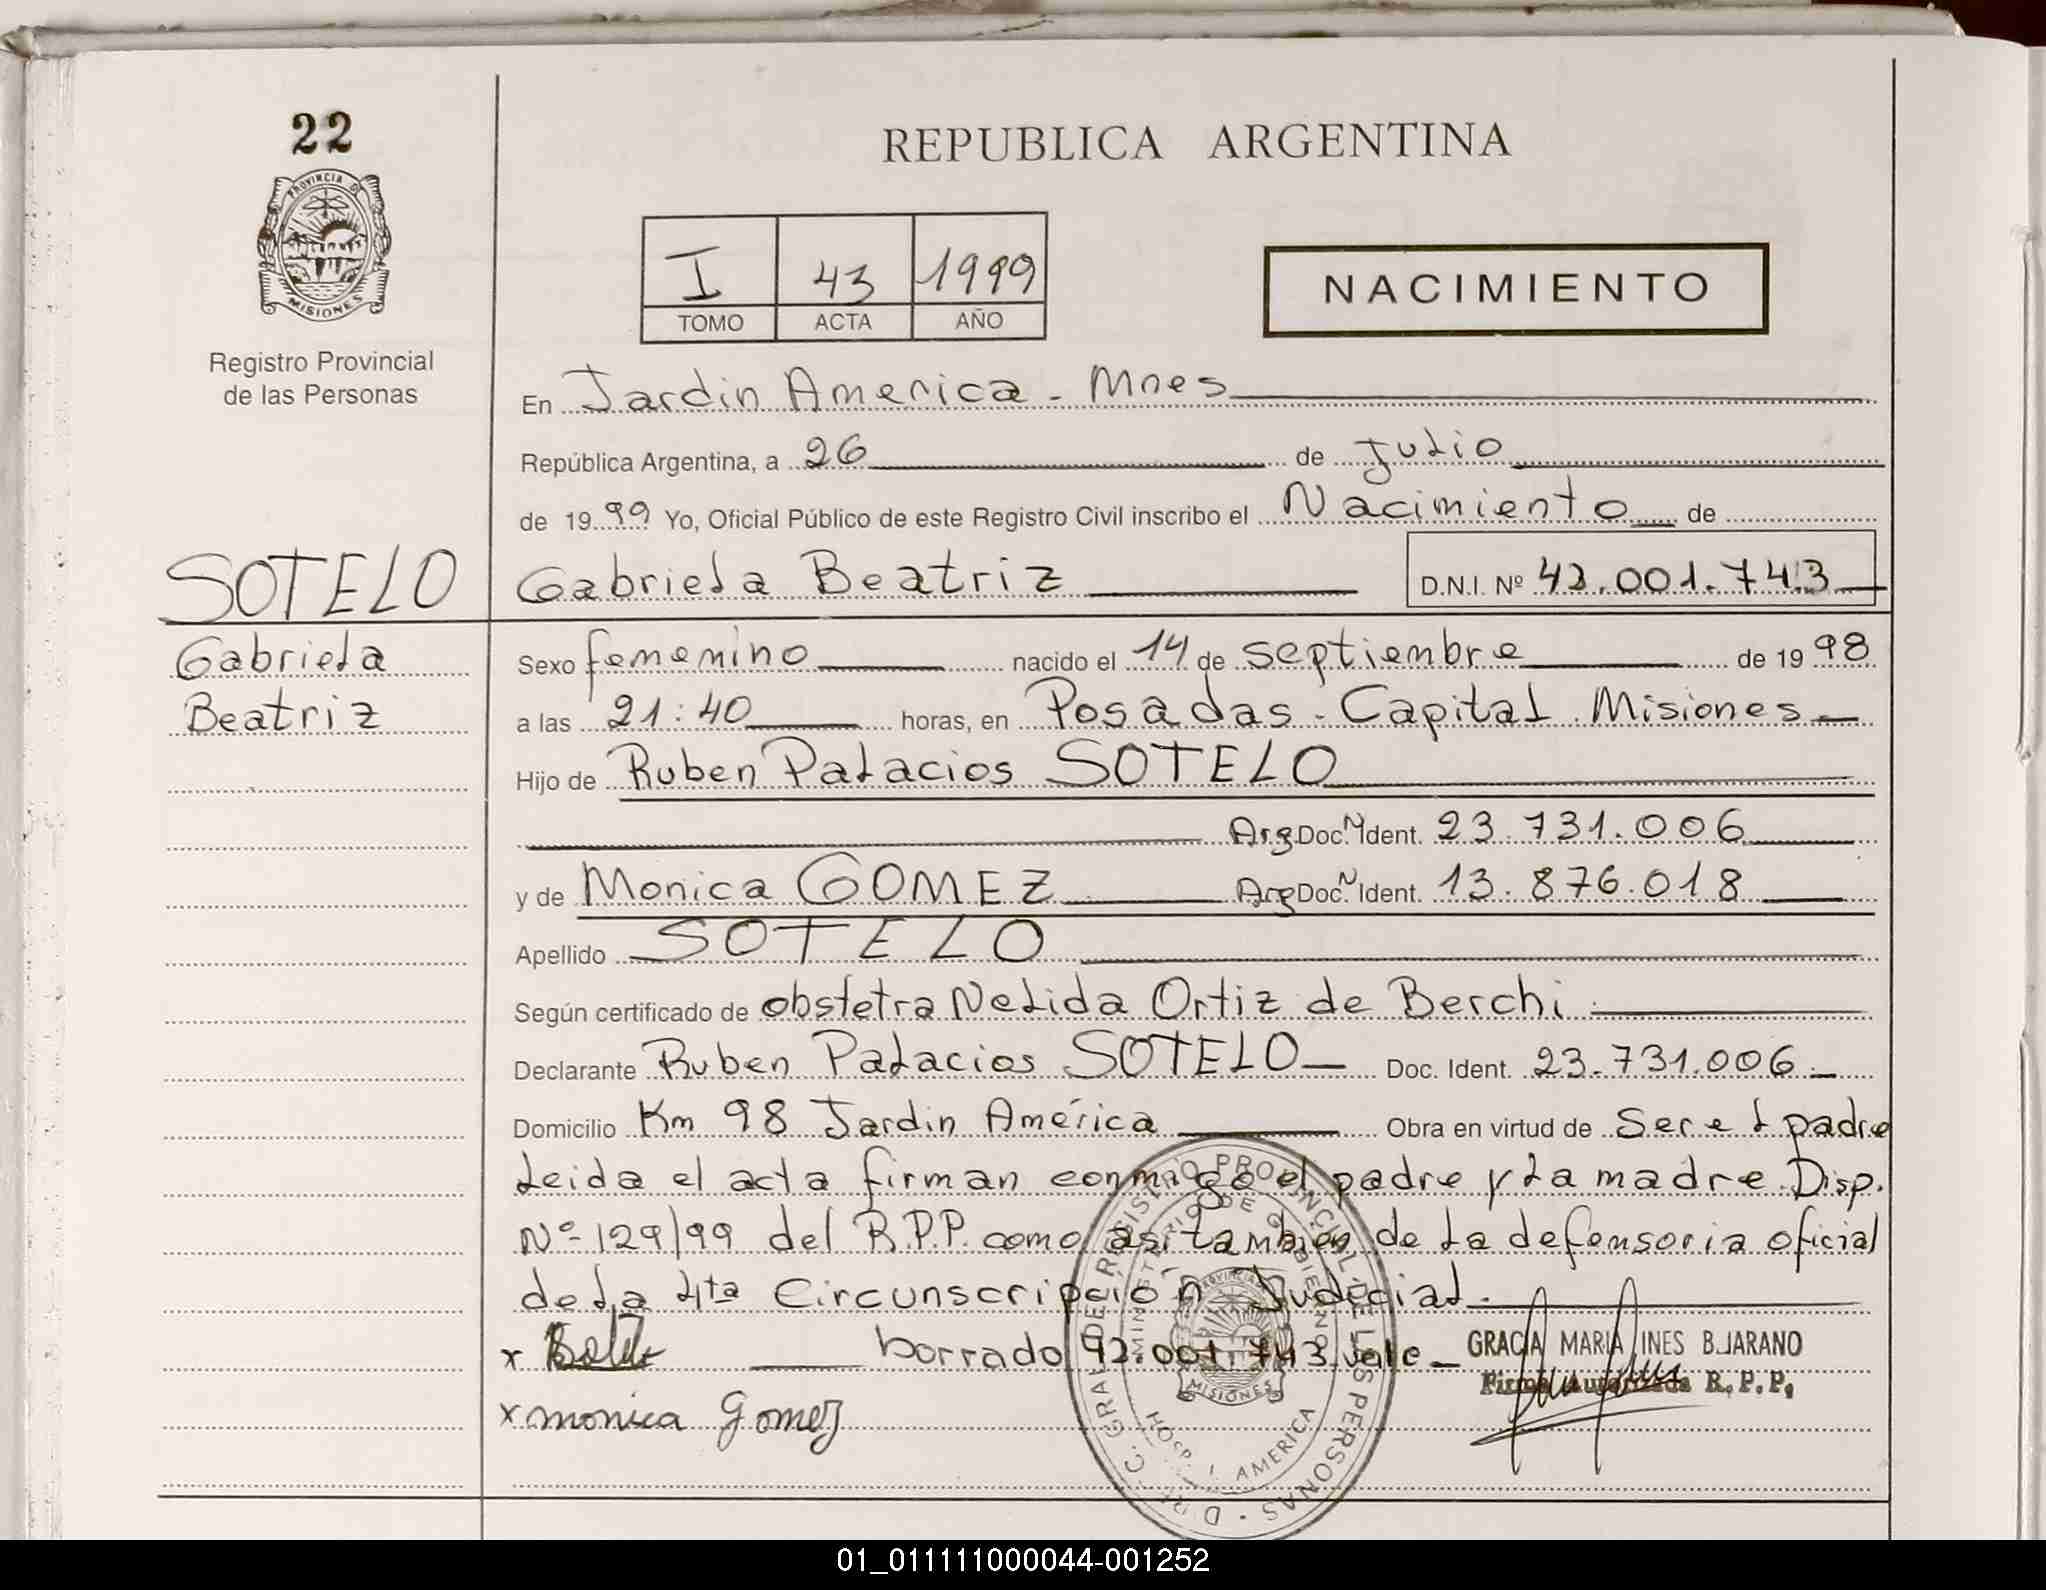 22
PROVINCIA DE
MISIONES
Registro Provincial
de las Personas
REPUBLICA ARGENTINA
I 43 1999
TOMO ACTA AÑO
NACIMIENTO
En Jardin America - Mnes
República Argentina, a 26 de Julio
de 1999 Yo, Oficial Público de este Registro Civil inscribo el Nacimiento de
SOTELO Gabriela Beatriz D.N.I. Nº 42.001.743
Gabriela
Beatriz
Sexo femenino nacido el 14 de septiembre de 1998
a las 21:40 horas, en Posadas - Capital Misiones
Hijo de Ruben Palacios SOTELO
Arg Doc. N Ident. 23.731.006
y de Monica GOMEZ Arg Doc. N Ident. 13.876.018
Apellido SOTELO
Según certificado de obstetra Nelida Ortiz de Berchi
Declarante Ruben Palacios SOTELO Doc. Ident. 23.731.006
Domicilio Km 98 Jardin América Obra en virtud de Ser el padre
Leida el acta firman conmigo el padre y la madre Disp.
Nº 129/99 del R.P.P. como asi tambien de la defensoria oficial
de la 4ta Circunscripción Judicial.
x borrado 42.001.743 vale
x monica Gomez
GRACIA MARIA INES BEJARANO
Firma Autorizada R.P.P.
GRAL DE REGISTRO PROVINCIAL DE LAS PERSONAS
MINISTERIO DE GOBIERNO
PROVINCIA
MISIONES
HOSP. J. AMERICA
01_011111000044-001252